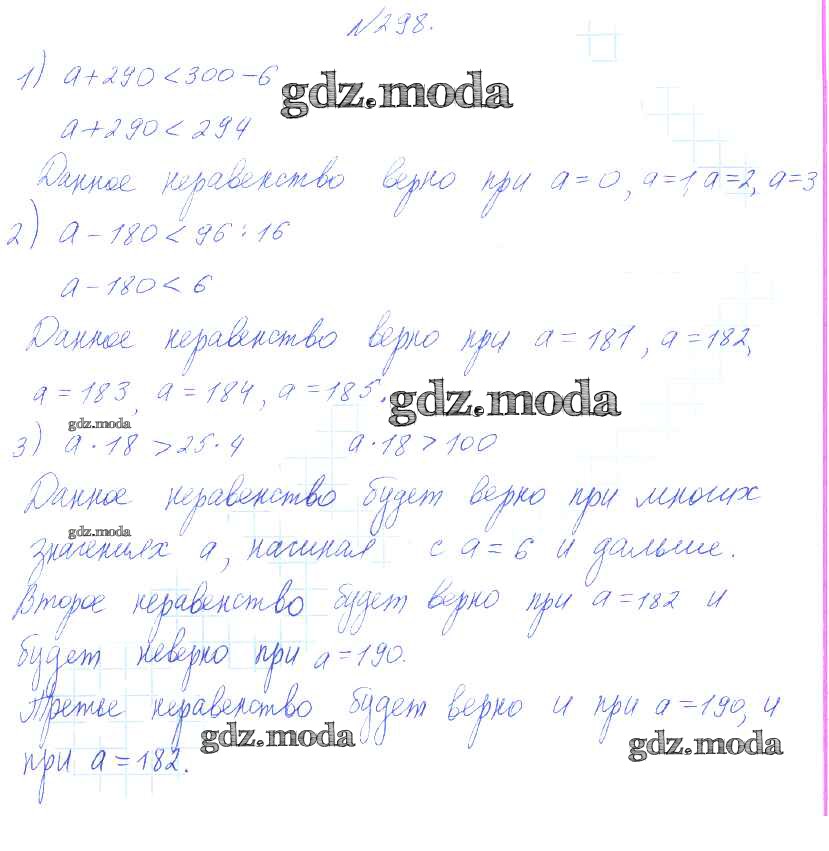 №298.
1) a+290<300-6
gdz.moda
a+290<294
Данное неравенство верно при a=0, a=1, a=2, a=3
2) a-180<96:16
a-180<6
Данное неравенство верно при a=181, a=182,
a=183, a=184, a=185.
gdz.moda
gdz.moda
3) a·18>25·4 a·18>100
Данное неравенство будет верно при многих
gdz.moda
значениях a, начиная с a=6 и дальше.
Второе неравенство будет верно при a=182 и
будет неверно при a=190.
Третье неравенство будет верно и при a=190, и
gdz.moda
gdz.moda
при a=182.